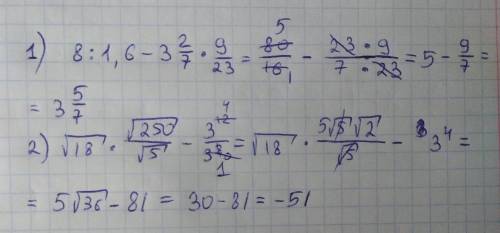 1) 8 : 1,6 − 3 2/7 · 9/23 = 80/16 5 1 − 23 · 9 / 7 · 23 = 5 − 9/7 =
= 3 5/7
2) √18 · √250/√5 − 3¹²/3⁸ 4 1 = √18 · 5√5√2/√5 − 3⁴ =
= 5√36 − 81 = 30 − 81 = −51